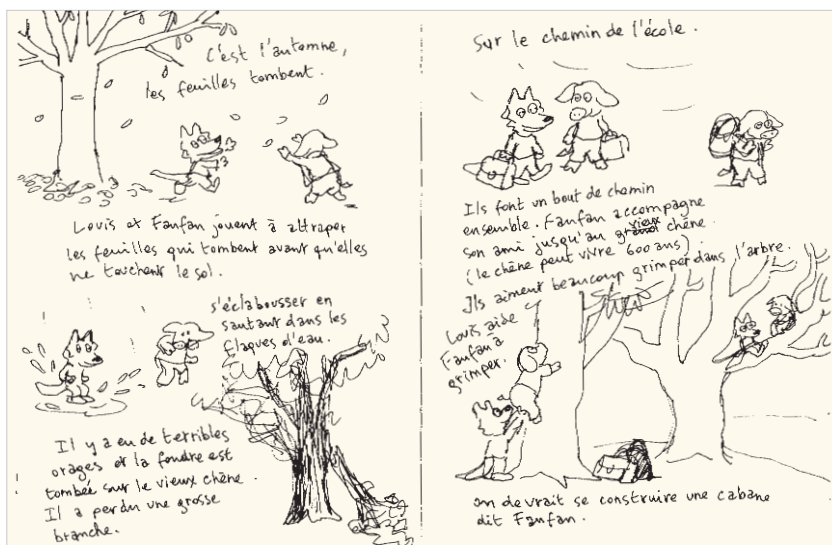 C'est l'automne,
les feuilles tombent.
Louis et Fanfan jouent à attraper
les feuilles qui tombent avant qu'elles
ne touchent le sol.
s'éclabousser en
sautant dans les
flaques d'eau.
Il y a eu de terribles
orages et la foudre est
tombée sur le vieux chêne.
Il a perdu une grosse
branche.
Sur le chemin de l'école.
Ils font un bout de chemin
ensemble. Fanfan accompagne
son ami jusqu'au vieux chêne.
(le chêne peut vivre 600 ans).
Ils aiment beaucoup grimper dans l'arbre.
Louis aide
Fanfan à
grimper.
on devrait se construire une cabane
dit Fanfan.